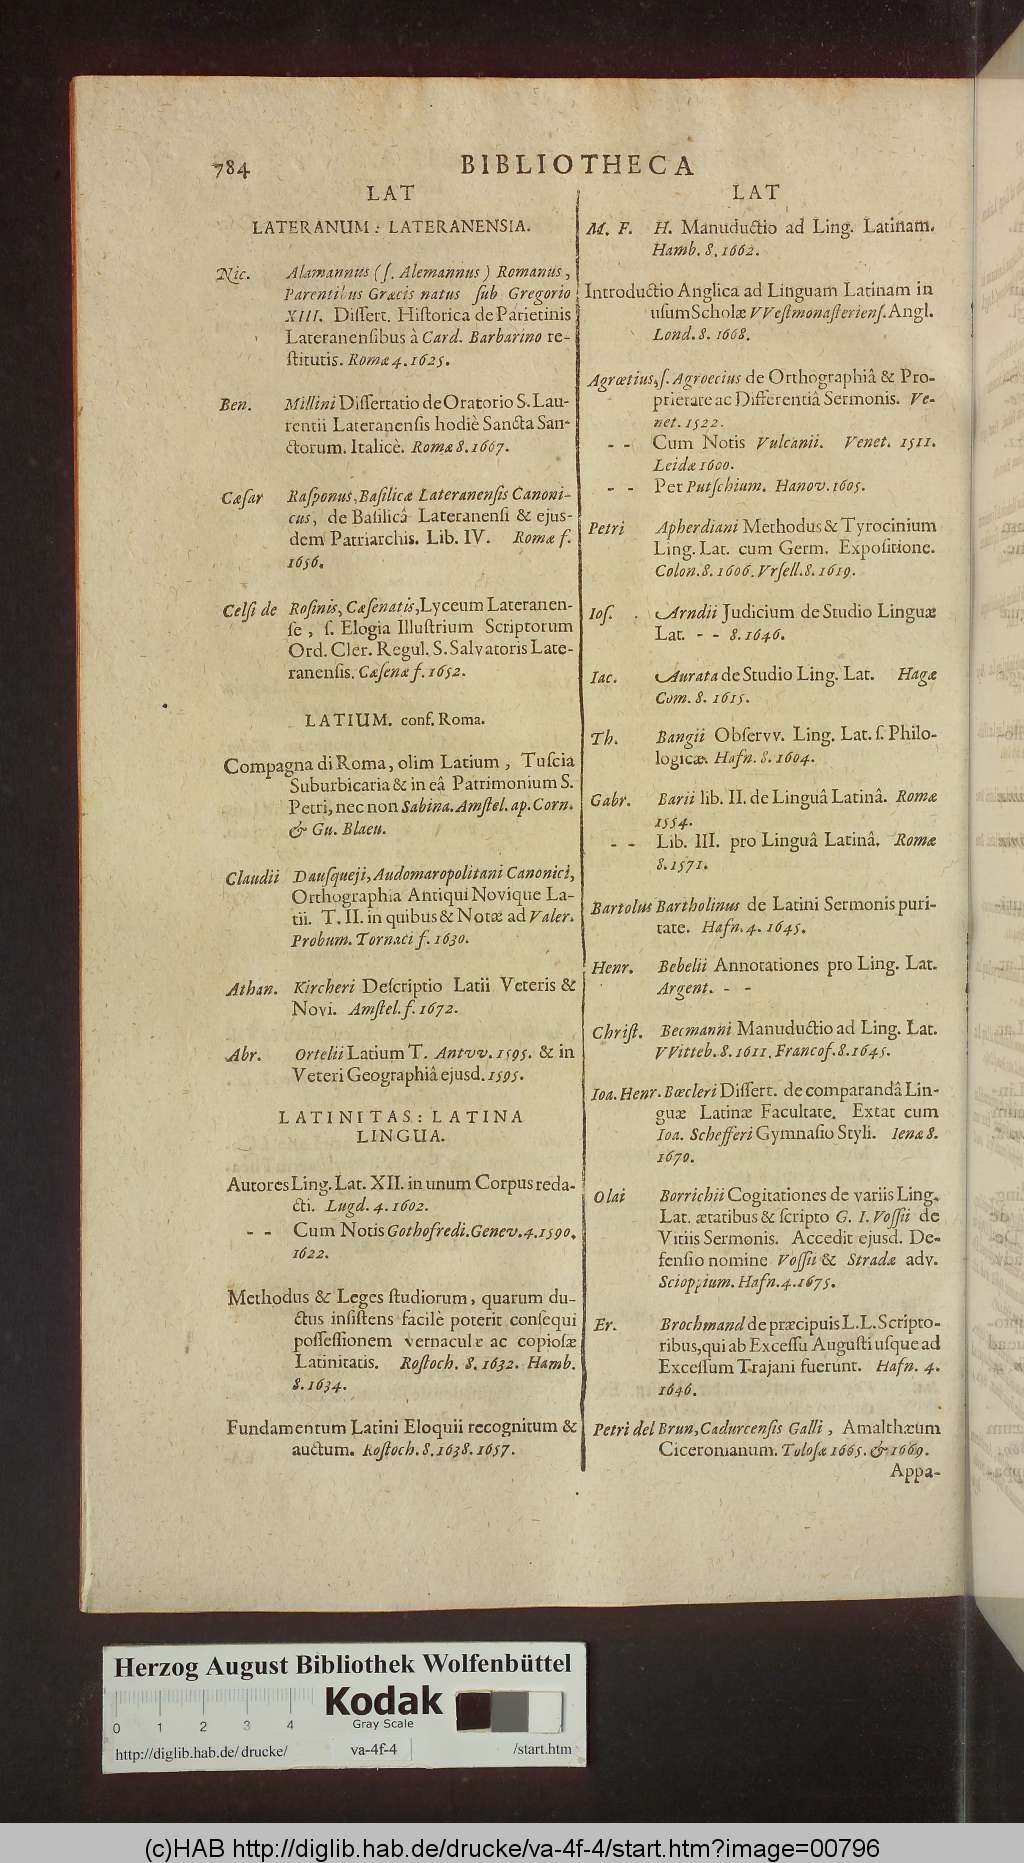 784
BIBLIOTHECA
LAT
LATERANUM: LATERANENSIA.
Nic. Alamannus (ſ. Alemannus) Romanus,
Parentibus Græcis natus ſub Gregorio
XIII. Diſſert. Hiſtorica de Parietinis
Lateranenſibus à Card. Barbarino re-
ſtitutis. Romæ 4. 1625.
Ben. Millini Diſſertatio de Oratorio S. Lau-
rentii Lateranenſis hodiè Sancta San-
ctorum. Italicè. Romæ 8. 1667.
Cæſar Raſponus, Baſilicæ Lateranenſis Canoni-
cus, de Baſilicâ Lateranenſi & ejus-
dem Patriarchis. Lib. IV. Romæ f.
1656.
Celſi de Roſinis, Cæſenatis, Lyceum Lateranen-
ſe, ſ. Elogia Illuſtrium Scriptorum
Ord. Cler. Regul. S. Salvatoris Late-
ranenſis. Cæſenæ f. 1652.
LATIUM. conf. Roma.
Compagna di Roma, olim Latium, Tuſcia
Suburbicaria & in eâ Patrimonium S.
Petri, nec non Sabina. Amſtel. ap. Corn.
& Gu. Blaeu.
Claudii Dauſqueji, Audomaropolitani Canonici,
Orthographia Antiqui Novique La-
tii. T. II. in quibus & Notæ ad Valer.
Probum. Tornaci f. 1630.
Athan. Kircheri Deſcriptio Latii Veteris &
Novi. Amſtel. f. 1672.
Abr. Ortelii Latium T. Antvv. 1595. & in
Veteri Geographiâ ejusd. 1595.
LATINITAS: LATINA
LINGUA.
Autores Ling. Lat. XII. in unum Corpus reda-
cti. Lugd. 4. 1602.
- - Cum Notis Gothofredi. Genev. 4. 1590.
1622.
Methodus & Leges ſtudiorum, quarum du-
ctus inſiſtens facilè poterit conſequi
poſſeſſionem vernaculæ ac copioſæ
Latinitatis. Roſtoch. 8. 1632. Hamb.
8. 1634.
Fundamentum Latini Eloquii recognitum &
auctum. Roſtoch. 8. 1638. 1657.
LAT
M. F. H. Manuductio ad Ling. Latinam.
Hamb. 8. 1662.
Introductio Anglica ad Linguam Latinam in
uſum Scholæ VVeſtmonaſterienſ. Angl.
Lond. 8. 1668.
Agrœtius, ſ. Agroecius de Orthographiâ & Pro-
prietate ac Differentiâ Sermonis. Ve-
net. 1522.
- - Cum Notis Vulcanii. Venet. 1511.
Leidæ 1600.
- - Per Putſchium. Hanov. 1605.
Petri Apherdiani Methodus & Tyrocinium
Ling. Lat. cum Germ. Expoſitione.
Colon. 8. 1606. Vrſell. 8. 1619.
Ioſ. Arndii Judicium de Studio Linguæ
Lat. - - 8. 1646.
Iac. Aurata de Studio Ling. Lat. Hagæ
Com. 8. 1615.
Th. Bangii Obſervv. Ling. Lat. ſ. Philo-
logicæ. Hafn. 8. 1604.
Gabr. Barii lib. II. de Linguâ Latinâ. Romæ
1554.
- - Lib. III. pro Linguâ Latinâ. Romæ
8. 1571.
Bartolus Bartholinus de Latini Sermonis puri-
tate. Hafn. 4. 1645.
Henr. Bebelii Annotationes pro Ling. Lat.
Argent. - -
Chriſt. Becmanni Manuductio ad Ling. Lat.
VVitteb. 8. 1611. Francof. 8. 1645.
Ioa. Henr. Bœcleri Diſſert. de comparandâ Lin-
guæ Latinæ Facultate. Extat cum
Ioa. Schefferi Gymnaſio Styli. Ienæ 8.
1670.
Olai Borrichii Cogitationes de variis Ling.
Lat. ætatibus & ſcripto G. I. Voſſii de
Vitiis Sermonis. Accedit ejusd. De-
fenſio nomine Voſſii & Stradæ adv.
Scioppium. Hafn. 4. 1675.
Er. Brochmand de præcipuis L. L. Scripto-
ribus, qui ab Exceſſu Auguſti uſque ad
Exceſſum Trajani fuerunt. Hafn. 4.
1646.
Petri del Brun, Cadurcenſis Galli, Amalthæum
Ciceronianum. Toloſæ 1665. & 1669.
Appa-
Herzog August Bibliothek Wolfenbüttel
Kodak
Gray Scale
0 1 2 3 4
http://diglib.hab.de/drucke/ va-4f-4 /start.htm
(c)HAB http://diglib.hab.de/drucke/va-4f-4/start.htm?image=00796